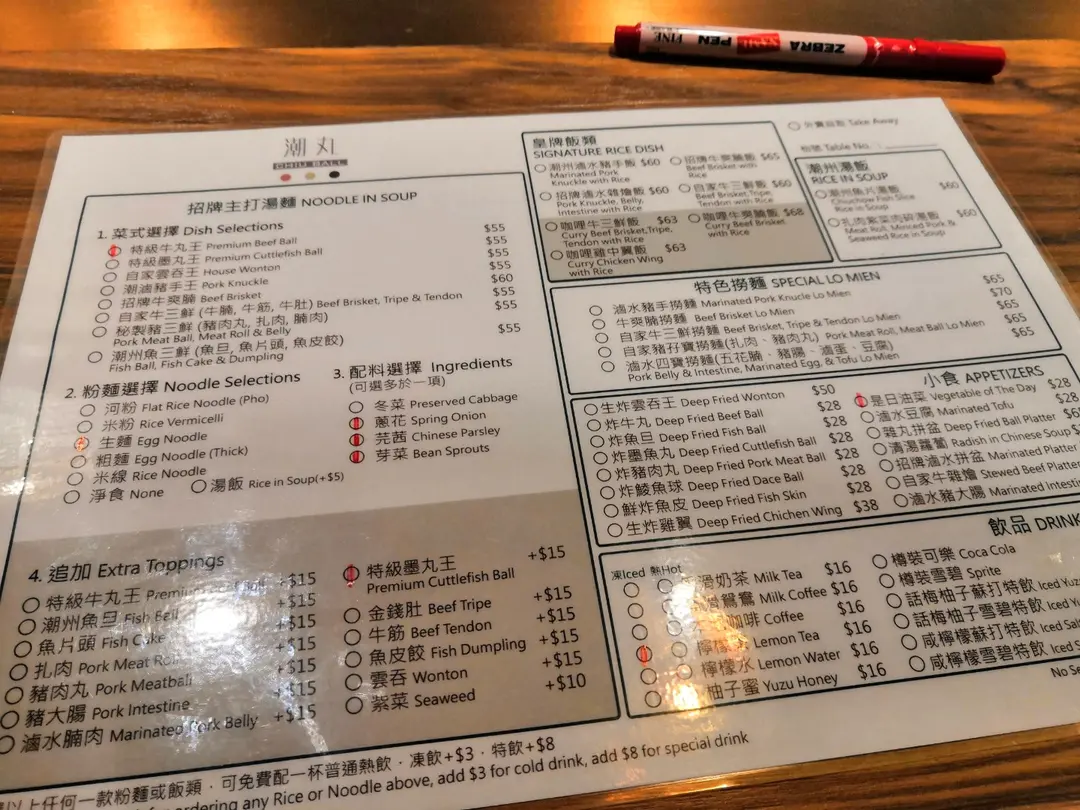 ZEBRA
PEN
FINE
潮丸
CHIU BALL
招牌主打湯麵 NOODLE IN SOUP
1. 菜式選擇 Dish Selections
特級牛丸王 Premium Beef Ball $55
特級墨丸王 Premium Cuttlefish Ball $55
自家雲吞王 House Wonton $55
潮滷豬手王 Pork Knuckle $55
招牌牛爽腩 Beef Brisket $60
自家牛三鮮 (牛腩, 牛筋, 牛肚) Beef Brisket, Tripe & Tendon $55
秘製豬三鮮 (豬肉丸, 扎肉, 腩肉) $55
Pork Meat Ball, Meat Roll & Belly
潮州魚三鮮 (魚旦, 魚片頭, 魚皮餃) $55
Fish Ball, Fish Cake & Dumpling
2. 粉麵選擇 Noodle Selections
河粉 Flat Rice Noodle (Pho)
米粉 Rice Vermicelli
生麵 Egg Noodle
粗麵 Egg Noodle (Thick)
米線 Rice Noodle
淨食 None
湯飯 Rice in Soup(+$5)
3. 配料選擇 Ingredients
(可選多於一項)
冬菜 Preserved Cabbage
蔥花 Spring Onion
芫茜 Chinese Parsley
芽菜 Bean Sprouts
4. 追加 Extra Toppings
特級牛丸王 Premium Ball +$15
潮州魚旦 Fish Ball +$15
魚片頭 Fish Cake +$15
扎肉 Pork Meat Roll +$15
豬肉丸 Pork Meatball +$15
豬大腸 Pork Intestine +$15
滷水腩肉 Marinated Pork Belly +$15
特級墨丸王 +$15
Premium Cuttlefish Ball
金錢肚 Beef Tripe +$15
牛筋 Beef Tendon +$15
魚皮餃 Fish Dumpling +$15
雲吞 Wonton +$15
紫菜 Seaweed +$10
皇牌飯類
SIGNATURE RICE DISH
潮州滷水豬手飯 $60
Marinated Pork
Knuckle with Rice
招牌牛爽腩飯 $65
Beef Brisket with
Rice
招牌滷水雜燴飯 $60
Pork Knuckle, Belly,
Intestine with Rice
自家牛三鮮飯 $60
Beef Brisket,Tripe,
Tendon with Rice
咖哩牛三鮮飯 $63
Curry Beef Brisket,Tripe,
Tendon with Rice
咖哩牛爽腩飯 $68
Curry Beef Brisket
with Rice
咖哩雞中翼飯 $63
Curry Chicken Wing
with Rice
外賣自取 Take Away
枱號 Table No. :
潮州湯飯
RICE IN SOUP
潮州魚片湯飯 $60
Chiuchow Fish Slice
Rice in Soup
扎肉紫菜肉碎湯飯 $60
Meat Roll, Minced Pork &
Seaweed Rice in Soup
特色撈麵 SPECIAL LO MIEN
滷水豬手撈麵 Marinated Pork Knucle Lo Mien $65
牛爽腩撈麵 Beef Brisket Lo Mien $70
自家牛三鮮撈麵 Beef Brisket, Tripe & Tendon Lo Mien $65
自家豬孖寶撈麵(扎肉、豬肉丸) Pork Meat Roll, Meat Ball Lo Mien $65
滷水四寶撈麵(五花腩、豬腸、滷蛋、豆腐) $65
Pork Belly & Intestine, Marinated Egg, & Tofu Lo Mien
小食 APPETIZERS
生炸雲吞王 Deep Fried Wonton $50
炸牛丸 Deep Fried Beef Ball $28
炸魚旦 Deep Fried Fish Ball $28
炸墨魚丸 Deep Fried Cuttlefish Ball $28
炸豬肉丸 Deep Fried Pork Meat Ball $28
炸鯪魚球 Deep Fried Dace Ball $28
鮮炸魚皮 Deep Fried Fish Skin $28
生炸雞翼 Deep Fried Chichen Wing $38
是日油菜 Vegetable of The Day $28
滷水豆腐 Marinated Tofu $28
雜丸拼盆 Deep Fried Ball Platter
清湯蘿蔔 Radish in Chinese Soup
招牌滷水拼盆 Marinated Platter
自家牛雜燴 Stewed Beef Platter
滷水豬大腸 Marinated
飲品 DRINK
凍Iced 熱Hot
滑奶茶 Milk Tea $16
鴛鴦 Milk Coffee $16
咖啡 Coffee $16
檸檬茶 Lemon Tea $16
檸檬水 Lemon Water $16
柚子蜜 Yuzu Honey $16
樽裝可樂 Coca Cola
樽裝雪碧 Sprite
話梅柚子蘇打特飲 Iced
話梅柚子雪碧特飲 Iced
咸檸檬蘇打特飲 Iced
咸檸檬雪碧特飲 Iced
以上任何一款粉麵或飯類，可免費配一杯普通熱飲，凍飲+$3，特飲+$8
ordering any Rice or Noodle above, add $3 for cold drink, add $8 for special drink